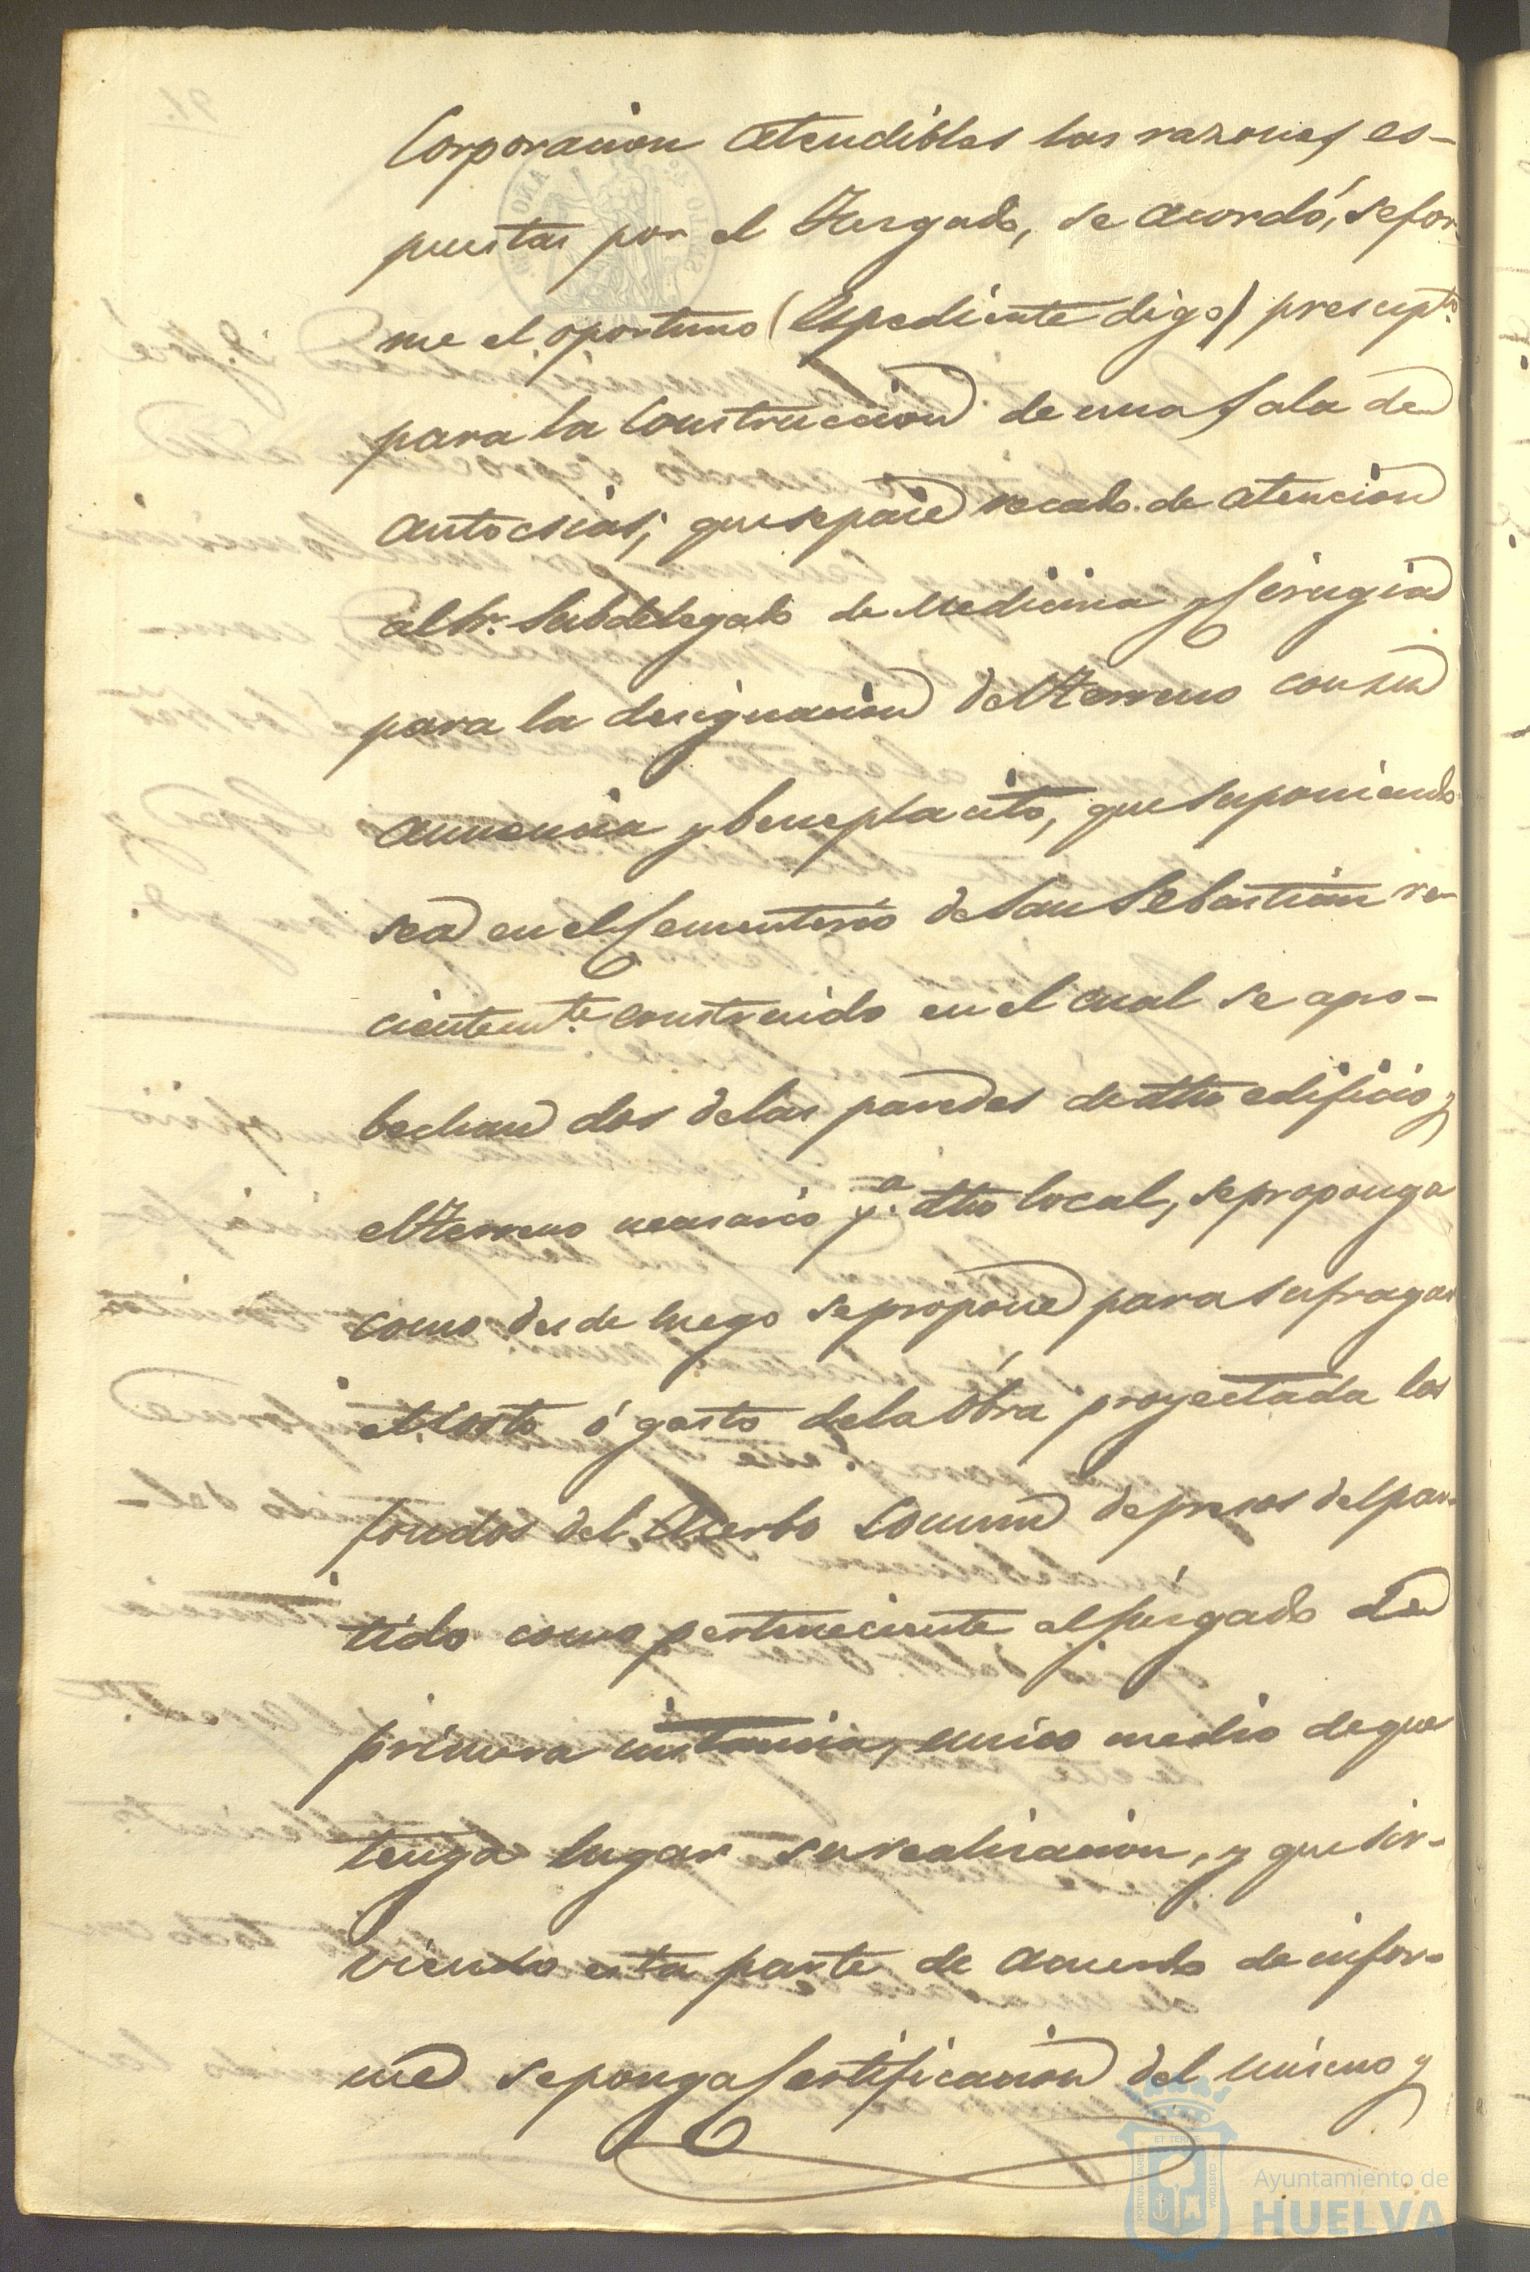 Corporacion atendibles las razones es-
puestas por el Juzgado, se acordó, se for-
me el oportuno (espediente digo) presupto.
para la Construccion de una Sala de
autocsias; que se pase recado de atencion
al Sr. Subdelegado de Medicina y Cirugia
para la designacion del terreno con su
anuencia y beneplacito, que suponiendo
sea en el Cementerio de San Sebastian re-
cientemte. construido en el cual se apro-
bechan dos de las paredes de dho edificio y
el terreno necesario pa. dho local, se proponga
como desde luego se propone para sufragar
el costo ó gasto de la óbra proyectada los
fondos del acerbo comun de presos del par-
tido como perteneciente al Juzgado de
primera instancia, unico medio de que
tenga lugar su realizacion, y que sir-
viendo esta parte de acuerdo de infor-
me se ponga Certificacion del mismo y
Ayuntamiento de
HUELVA